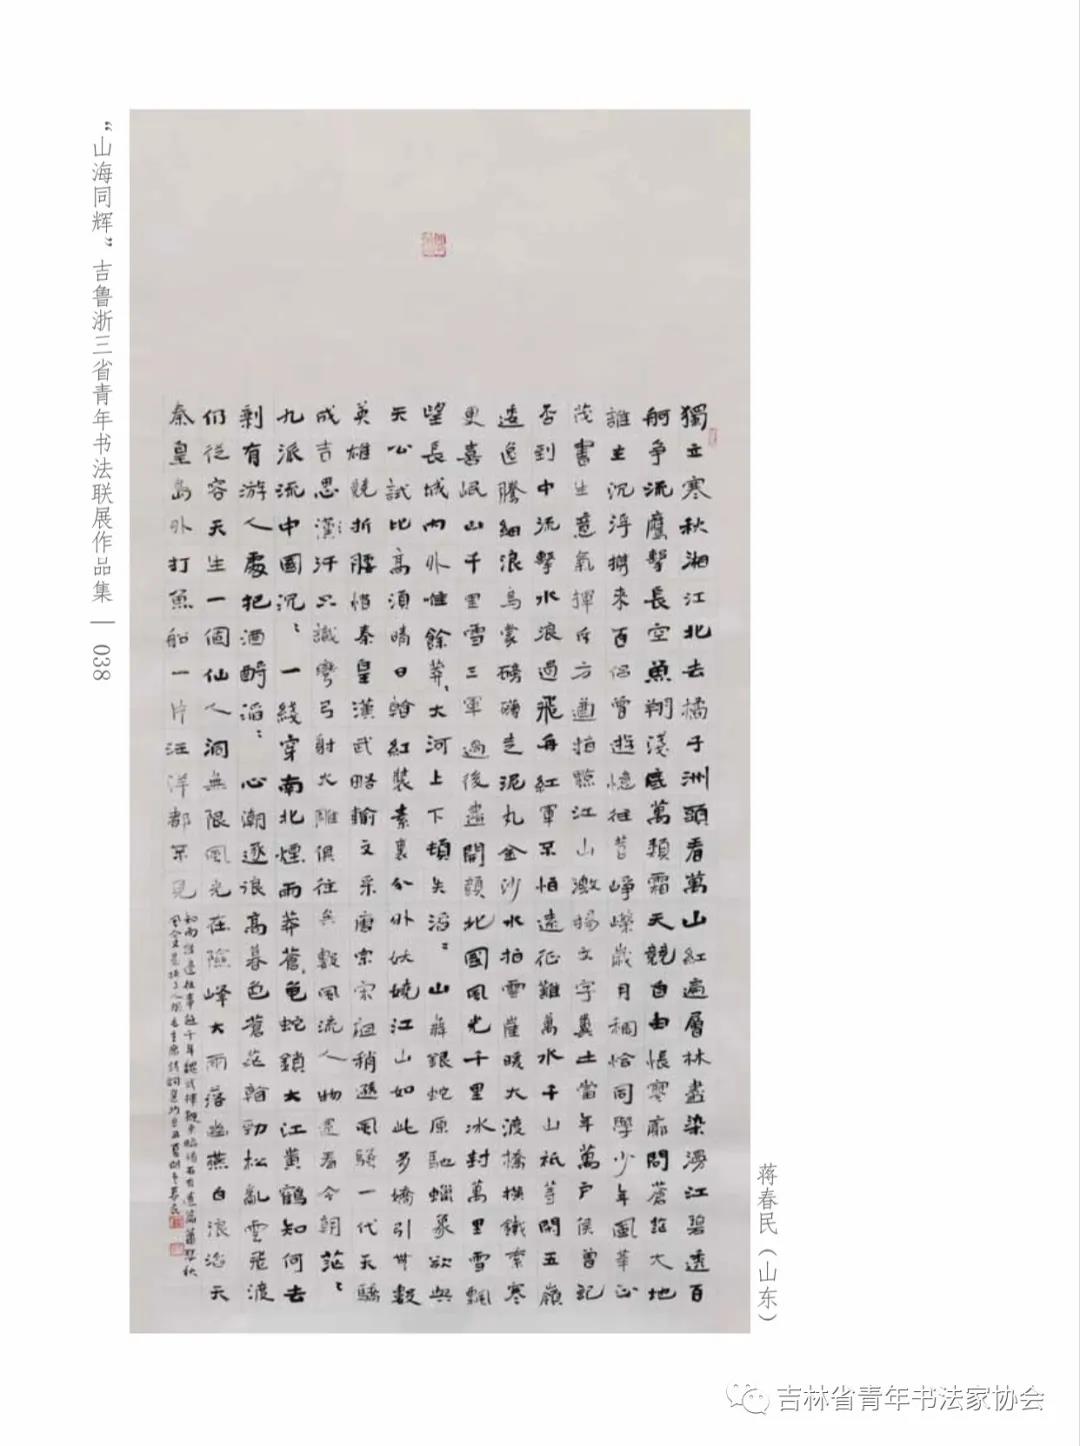 獨立寒秋湘江北去橘子洲頭看萬山紅遍層林盡染漫江碧透百
舸争流鷹擊長空魚翔淺底萬類霜天競自由悵寥廓問蒼茫大地
誰主沉浮攜來百侣曾遊憶往昔崢嶸歲月稠恰同學少年風華正
茂書生意氣揮斥方遒指點江山激揚文字糞土當年萬戶侯曾記
否到中流擊水浪遏飛舟紅軍不怕遠征難萬水千山祇等閑五嶺
逶迤騰細浪烏蒙磅礴走泥丸金沙水拍雲崖暖大渡橋横鐵索寒
更喜岷山千里雪三軍過後盡開顔北國風光千里冰封萬里雪飄
望長城内外惟餘莽〻大河上下頓失滔〻山舞銀蛇原馳蠟象欲與
天公試比高須晴日看紅裝素裹分外妖嬈江山如此多嬌引無數
英雄競折腰惜秦皇漢武略輸文采唐宗宋祖稍遜風騷一代天驕
成吉思漢汗只識彎弓射大雕俱往矣數風流人物還看今朝茫〻
九派流中國沉〻一綫穿南北煙雨莽蒼龜蛇鎖大江黄鶴知何去
剩有游人處把酒酹滔〻心潮逐浪高暮色蒼茫看勁松亂雲飛渡
仍從容天生一個仙人洞無限風光在險峰大雨落幽燕白浪滔天
秦皇島外打魚船一片汪洋都不見
知向誰邊往事越千年魏武揮鞭東臨碣石有遺篇蕭瑟秋
風今又是换了人間毛主席詩詞選抄辛丑夏春民
“山海同辉”吉鲁浙三省青年书法联展作品集 | 038
蒋春民（山东）
吉林省青年书法家协会